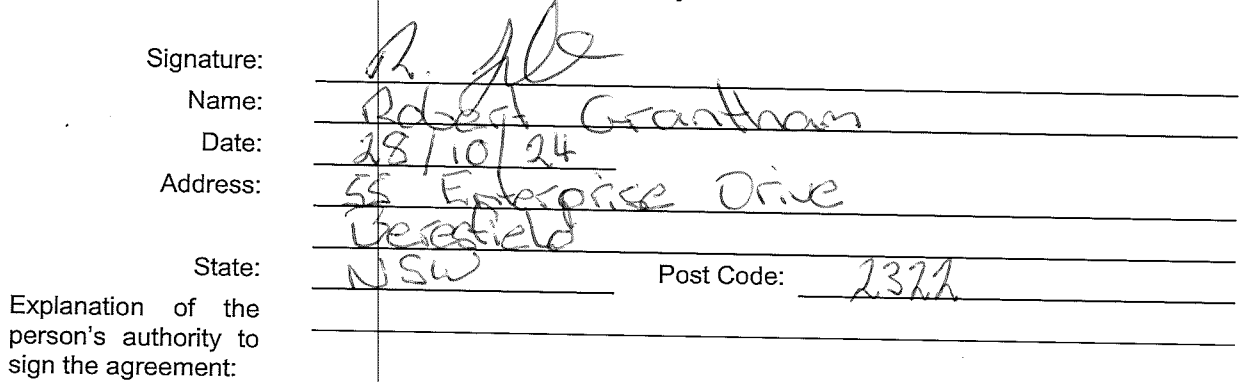 Signature: R.
Name: Robert Grantham
Date: 28/10/24
Address: 55 Enterprise Drive
Beresfield
State: NSW Post Code: 2322
Explanation of the
person's authority to
sign the agreement: